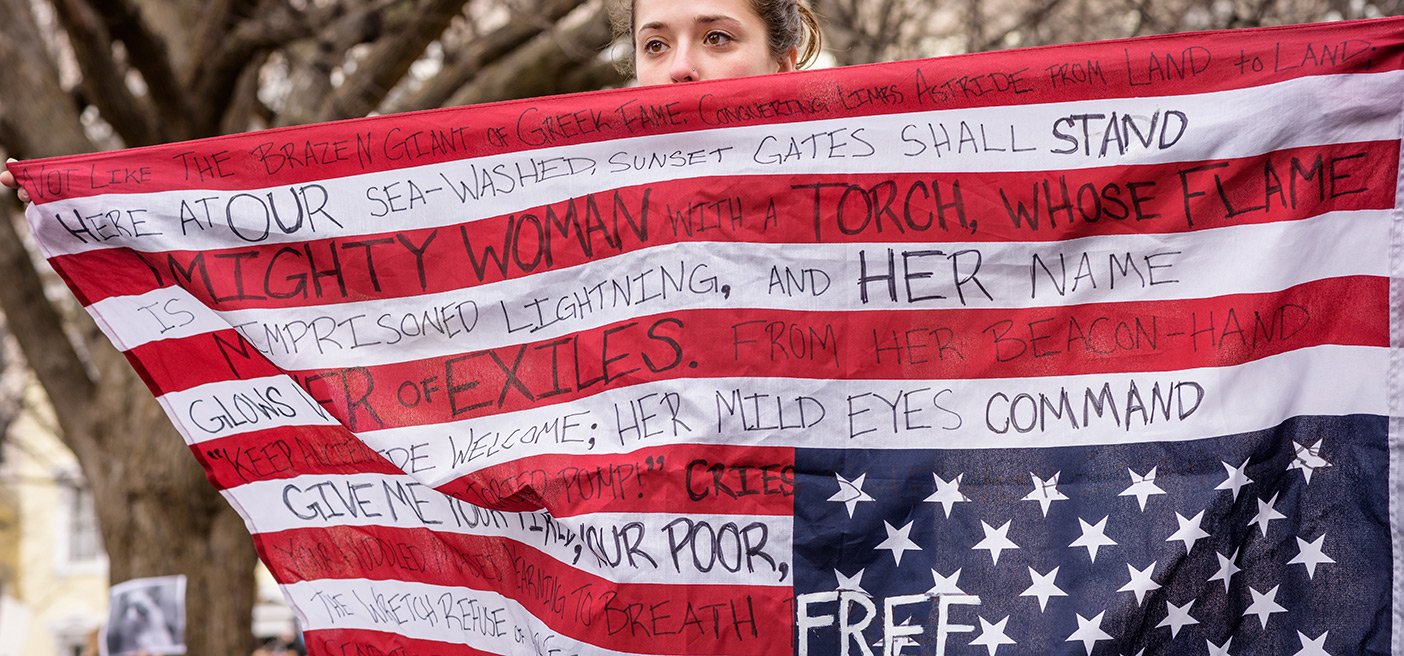 NOT LIKE THE BRAZEN GIANT OF GREEK FAME, CONQUERING LIMBS ASTRIDE FROM LAND to LAND;
HERE AT OUR SEA-WASHED, SUNSET GATES SHALL STAND
MIGHTY WOMAN WITH A TORCH, WHOSE FLAME
IS IMPRISONED LIGHTNING, AND HER NAME
OF EXILES. FROM HER BEACON-HAND
GLOWS WELCOME; HER MILD EYES COMMAND
"KEEP POMP!" CRIES
GIVE ME YOUR POOR,
YEARNING TO BREATH
THE WRETCH REFUSE
FREE